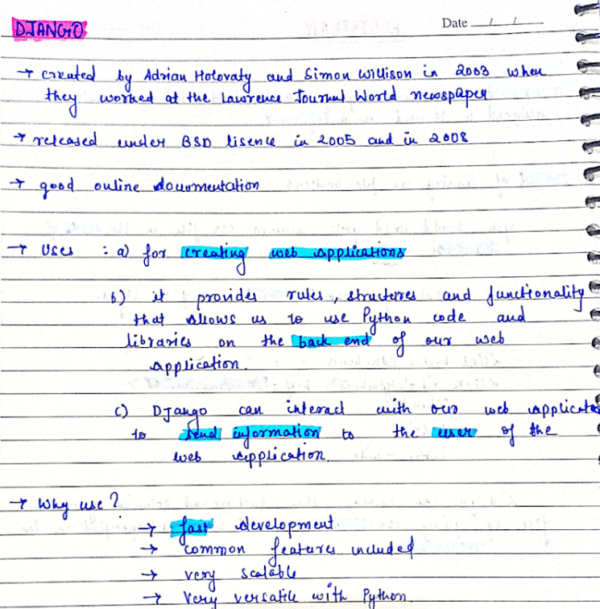 Date / /
DJANGO
→ created by Adrian Holovaty and Simon Willison in 2003 when
they worked at the Lawrence Journal World newspaper
→ released under BSD lisence in 2005 and in 2008
→ good online documentation
→ Uses : a) for creating web applications
b) it provides rules, structures and functionality
that allows us to use Python code and
libraries on the back end of our web
application.
c) Django can interact with our web applicatio
to send information to the user of the
web application.
→ Why use?
→ fast development
→ common features included
→ very scalable
→ very versatile with Python.